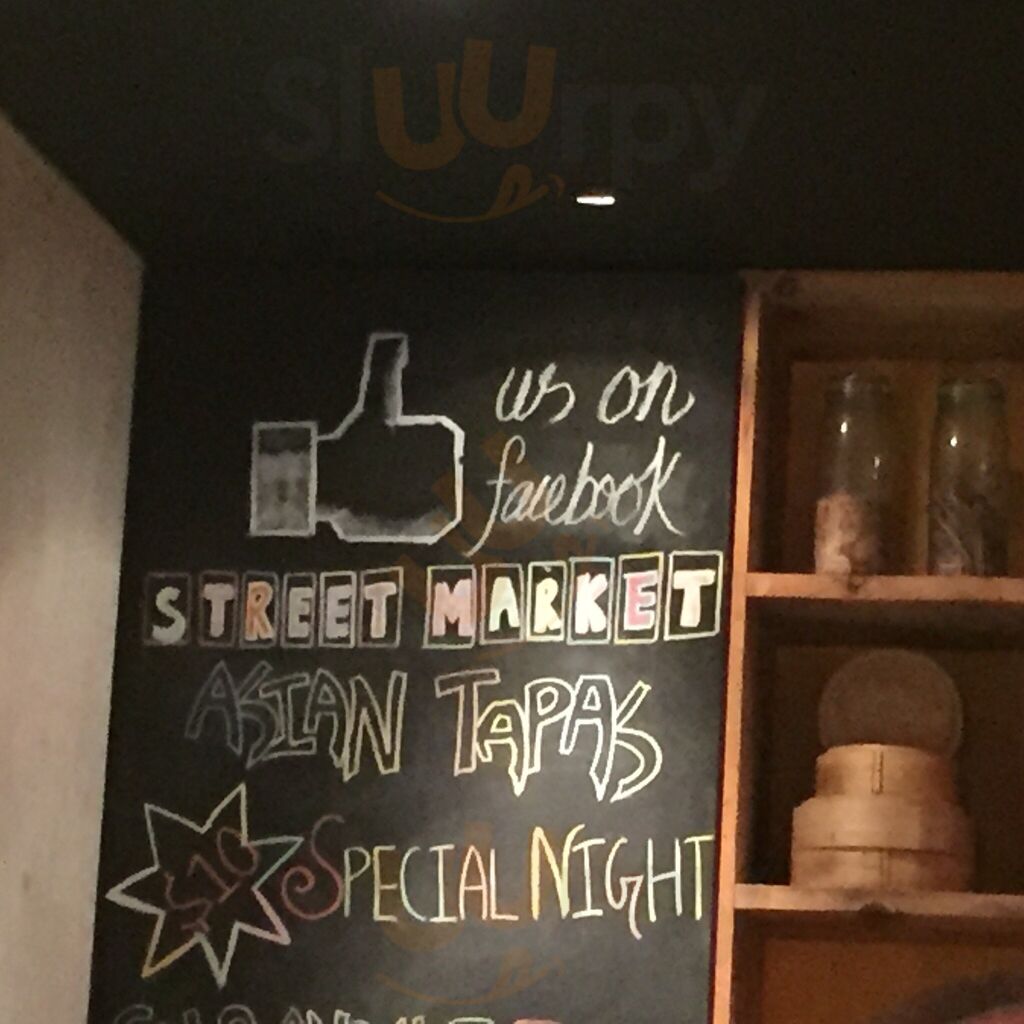 sluurpy
us on
facebook
STREET MARKET
ASIAN TAPAS
$10 SPECIAL NIGHT